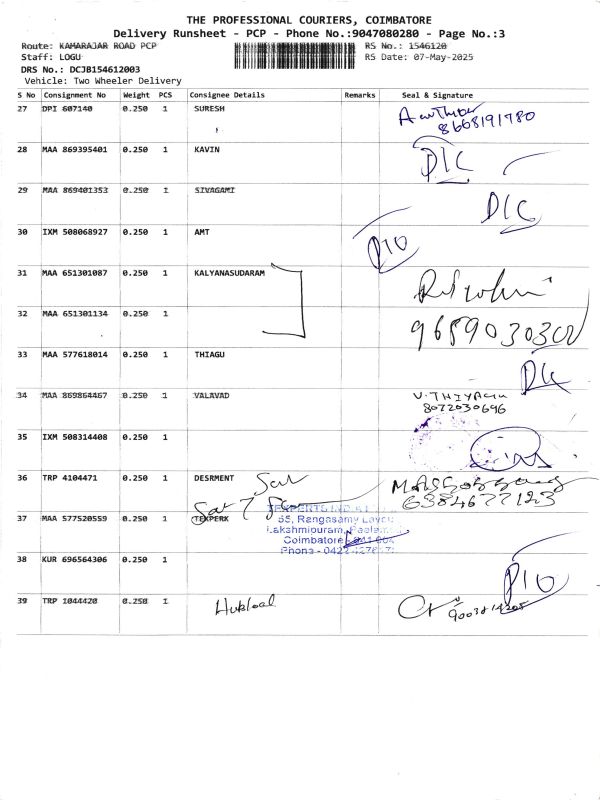 THE PROFESSIONAL COURIERS, COIMBATORE
Delivery Runsheet - PCP - Phone No.:9047080280 - Page No.:3
Route: KAMARAJAR ROAD PCP
RS No.: 1546120
Staff: LOGU
RS Date: 07-May-2025
DRS No.: DCJB154612003
Vehicle: Two Wheeler Delivery
S No Consignment No Weight PCS Consignee Details Remarks Seal & Signature
27 DPI 607140 0.250 1 SURESH
8668191780
28 MAA 869395401 0.250 1 KAVIN
29 MAA 869401353 0.250 1 SIVAGAMI
30 IXM 508068927 0.250 1 AMT
31 MAA 651301087 0.250 1 KALYANASUDARAM
32 MAA 651301134 0.250 1
33 MAA 577618014 0.250 1 THIAGU
34 MAA 869864467 0.250 1 VALAVAD
8072030696
35 IXM 508314408 0.250 1
36 TRP 4104471 0.250 1 DESRMENT
6384677123
37 MAA 577520559 0.250 1 TEXPERK
55, Rangasamy
Lakshmipuram,
Coimbatore
38 KUR 696564306 0.250 1
39 TRP 1044420 0.250 1